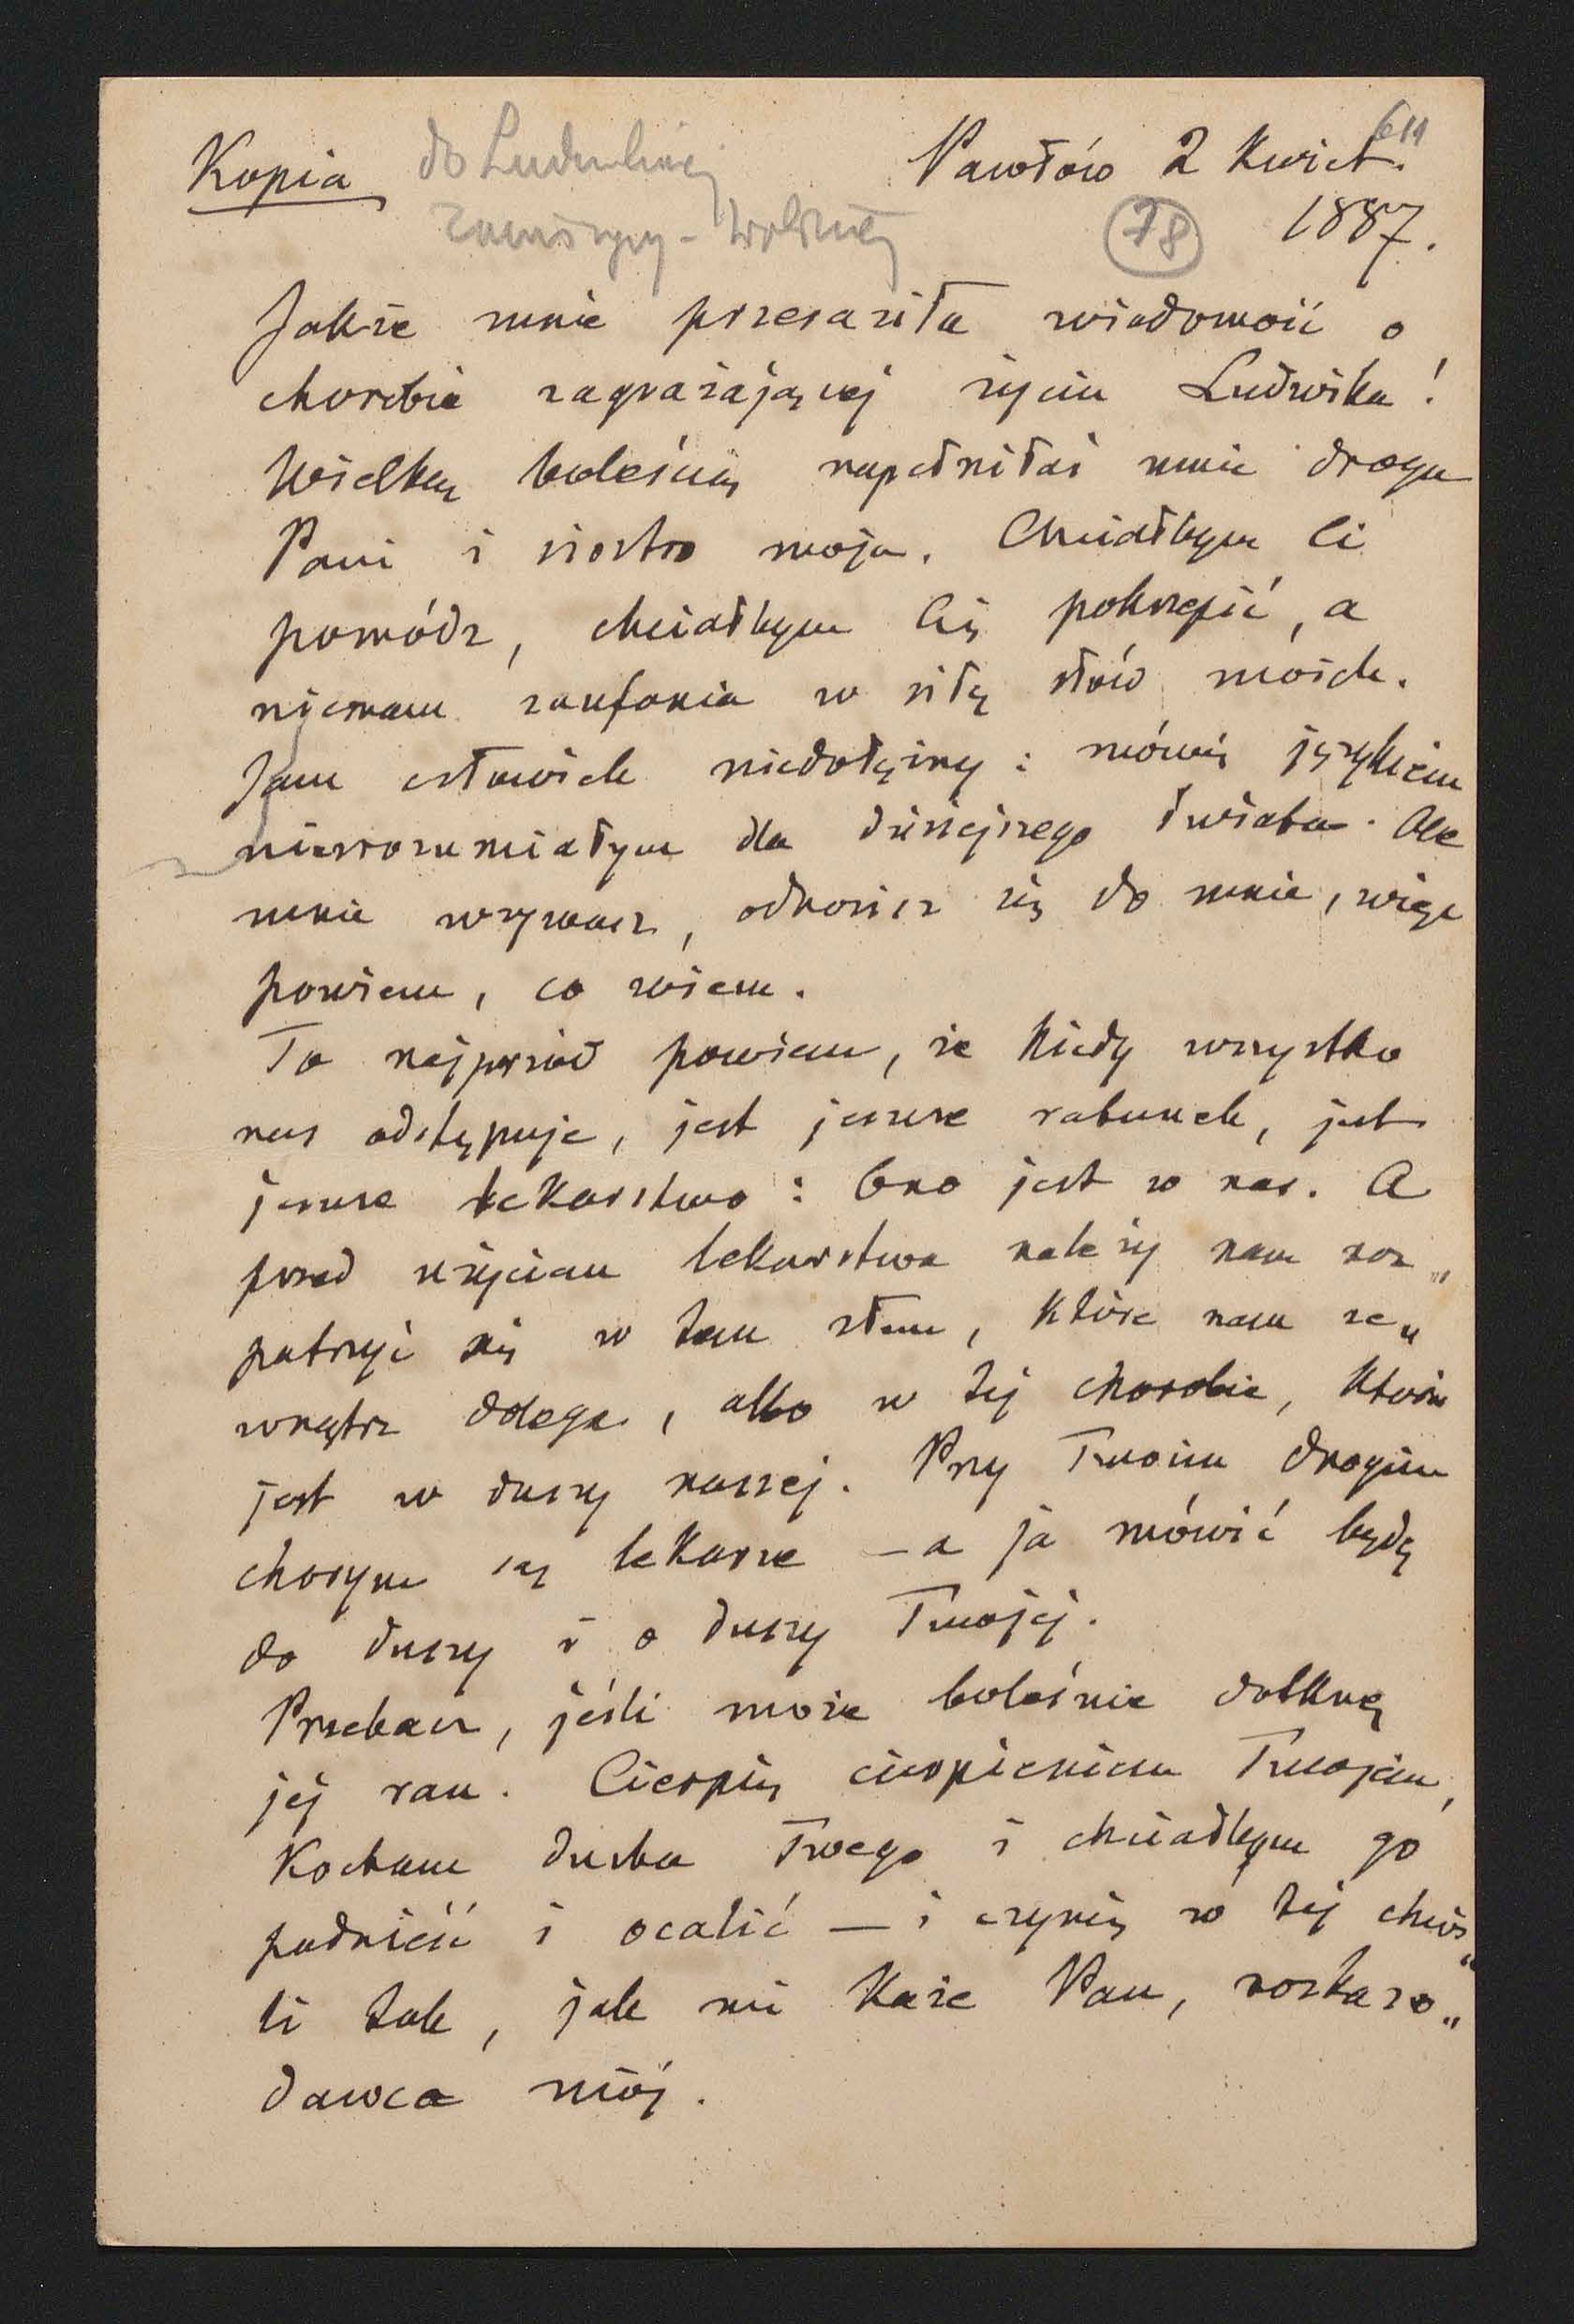 Kopia do Ludwiki Pawłów 2 Kwiet. 611
78 1887.
Jakże mnie przeraziła wiadomość o
chorobie zagrażającej życiu Ludwika!
Wielką boleścią napełniłaś mnie droga
Pani i siostro moja. Chciałbym Ci
pomódz, chciałbym Cię pokrzepić, a
niemam zaufania w siłę słów moich.
Jam człowiek niedołężny: mówię językiem
niezrozumiałym dla dzisiejszego świata. Ale
mnie wzywasz, odnosisz się do mnie, więc
powiem, co wiem.
To najprzód powiem, że kiedy wszystko
nas odstępuje, jest jeszcze ratunek, jest
jeszcze lekarstwo: Ono jest w nas. A
przed użyciem lekarstwa należy nam roz„
patrzyć się w tem złem, które nam ze„
wnątrz dolega, albo w tej chorobie, która
jest w duszy naszej. Przy Twoim drogim
chorym są lekarze – a ja mówić będę
do duszy i o duszy Twojej.
Przebacz, jeśli może boleśnie dotknę
jej ran. Cierpię cierpieniem Twojem,
Kocham ducha Twego i chciałbym go
podnieść i ocalić – i czynię w tej chwi„
li tak, jak mi każe Pan, rozkazo„
dawca mój.